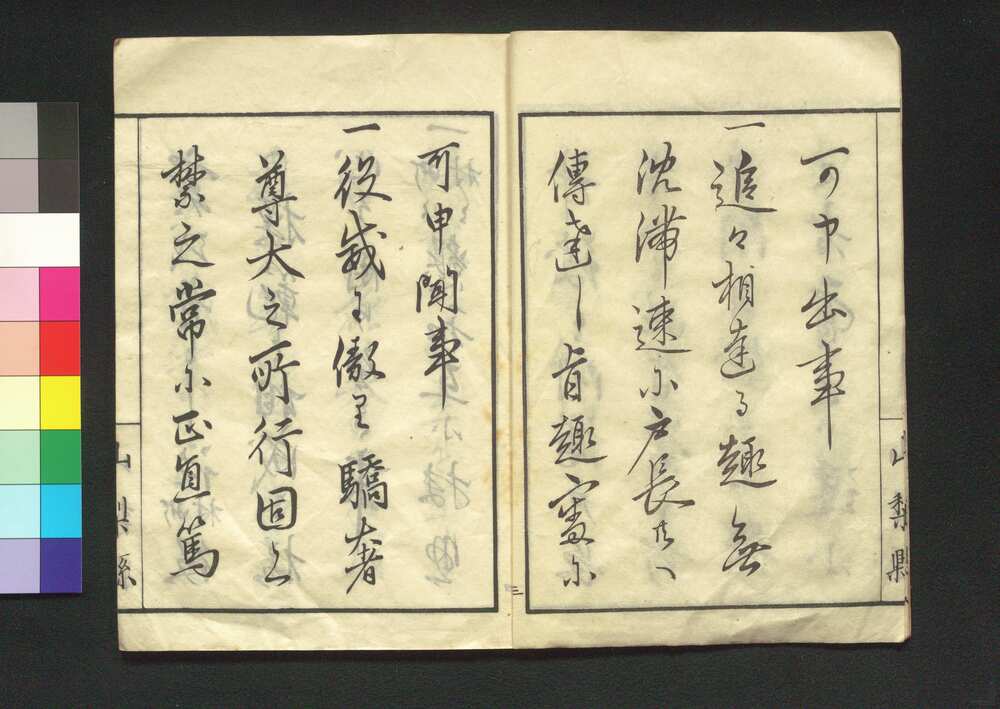 可申出事
一追々相達る趣無
沈滞速に戸長へ
傳達し旨趣審に
可申聞事
一役威に傲り驕奢
尊大之所行固く
禁之常に正直篤
山梨縣
山梨縣